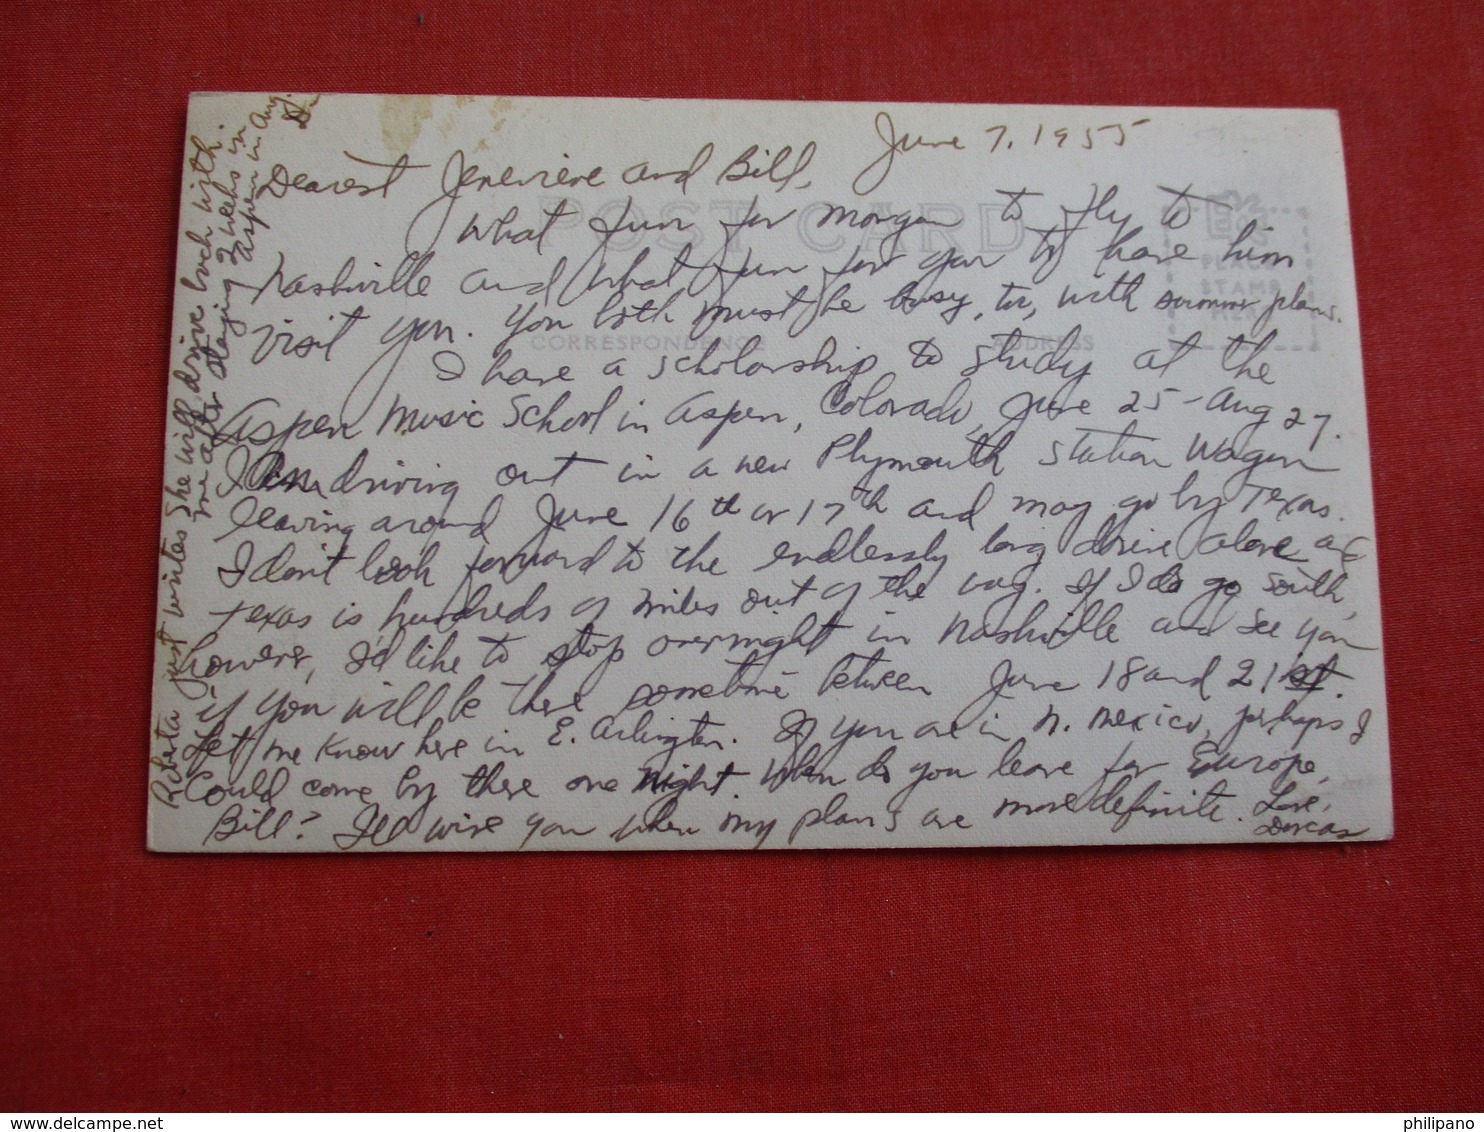 June 7, 1955
Dearest Jenevieve and Bill,
What fun for Morgan to fly to
Nashville and what fun for you to have him
visit you. You both must be busy, too, with summer plans.
I have a scholarship to study at the
Aspen Music School in Aspen, Colorado, June 25-Aug 27.
I am driving out in a new Plymouth Station Wagon
leaving around June 16th or 17th and may go by Texas.
I don't look forward to the endlessly long drive alone and
Texas is hundreds of miles out of the way. If I do go South,
however, I'd like to stop overnight in Nashville and see you
if you will be there sometime between June 18 and 21st.
Let me know here in E. Arlington. If you are in N. Mexico, perhaps I
could come by there one night. When do you leave for Europe,
Bill? I'll wire you when my plans are more definite. Love,
Dorcas
Roberta just writes she will drive back with
me after staying 2 weeks in
Aspen in Aug.
D.
POST CARD
CORRESPONDENCE
ADDRESS
PLACE
STAMP
HERE
www.delcampe.net
philipano